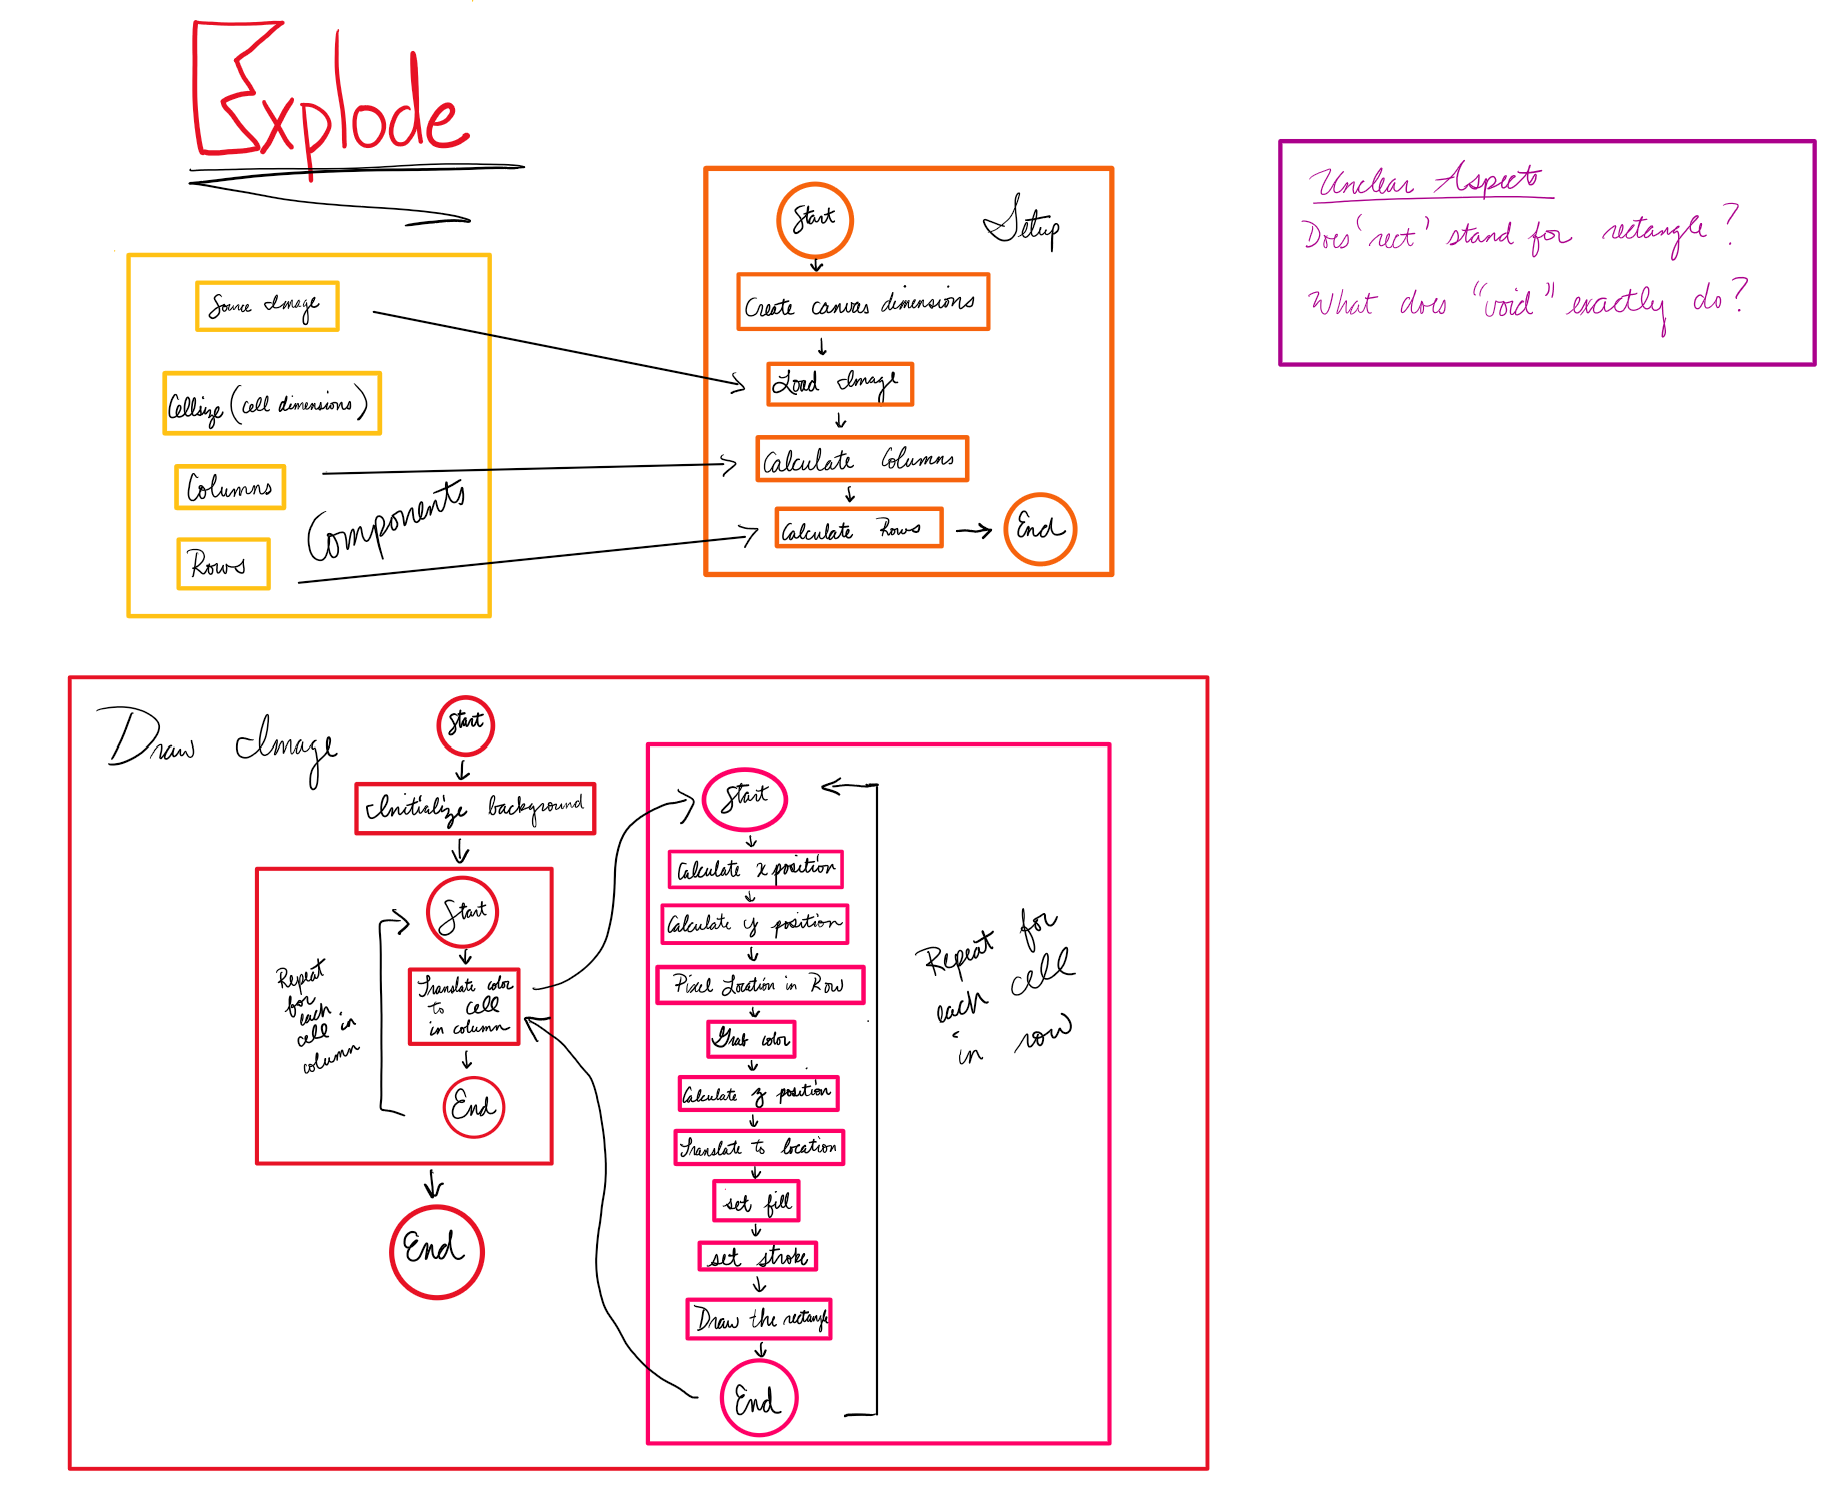 Explode
Source Image
Cellsize (cell dimensions)
Columns
Rows
Components
Setup
Start
Create canvas dimensions
Load Image
Calculate Columns
Calculate Rows
End
Unclear Aspects
Does 'rect' stand for rectangle?
What does "void" exactly do?
Draw Image
Start
Initialize background
Start
Translate color
to cell
in column
End
Repeat
for
each
cell in
column
End
Start
Calculate x position
Calculate y position
Pixel Location in Row
Grab color
Calculate z position
Translate to location
set fill
set stroke
Draw the rectangle
End
Repeat for
each cell
in row